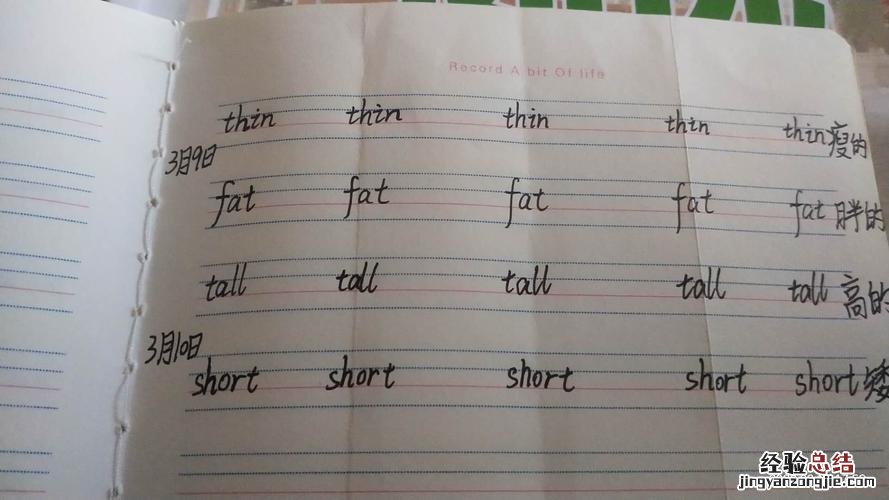 Record A bit Of life
thin thin thin thin thin瘦的
3月9日
fat fat fat fat fat胖的
tall tall tall tall tall高的
3月10日
short short short short short矮
经验总结
jingyanzongjie.com